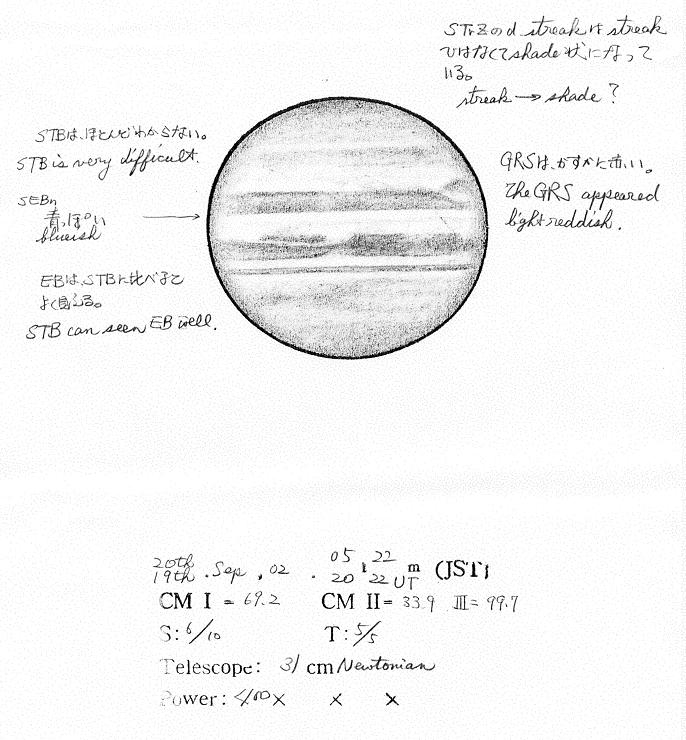 STrZのd streakはstreak
ではなくてshade状になって
いる。
streak → shade ?
STBは、ほとんどわからない。
STB is very difficult.
GRSは、かすかに赤い。
The GRS appeared
light reddish.
SEBn
青っぽい
blueish
EBは、STBに比べると
よく見える。
STB can seen EB well.
20th 05h 22m (JST)
19th . Sep , 02 . 20 22 UT
CM I = 69.2 CM II = 33.9 III = 99.7
S: 6/10 T: 5/5
Telescope: 31 cm Newtonian
Power: 400× × ×